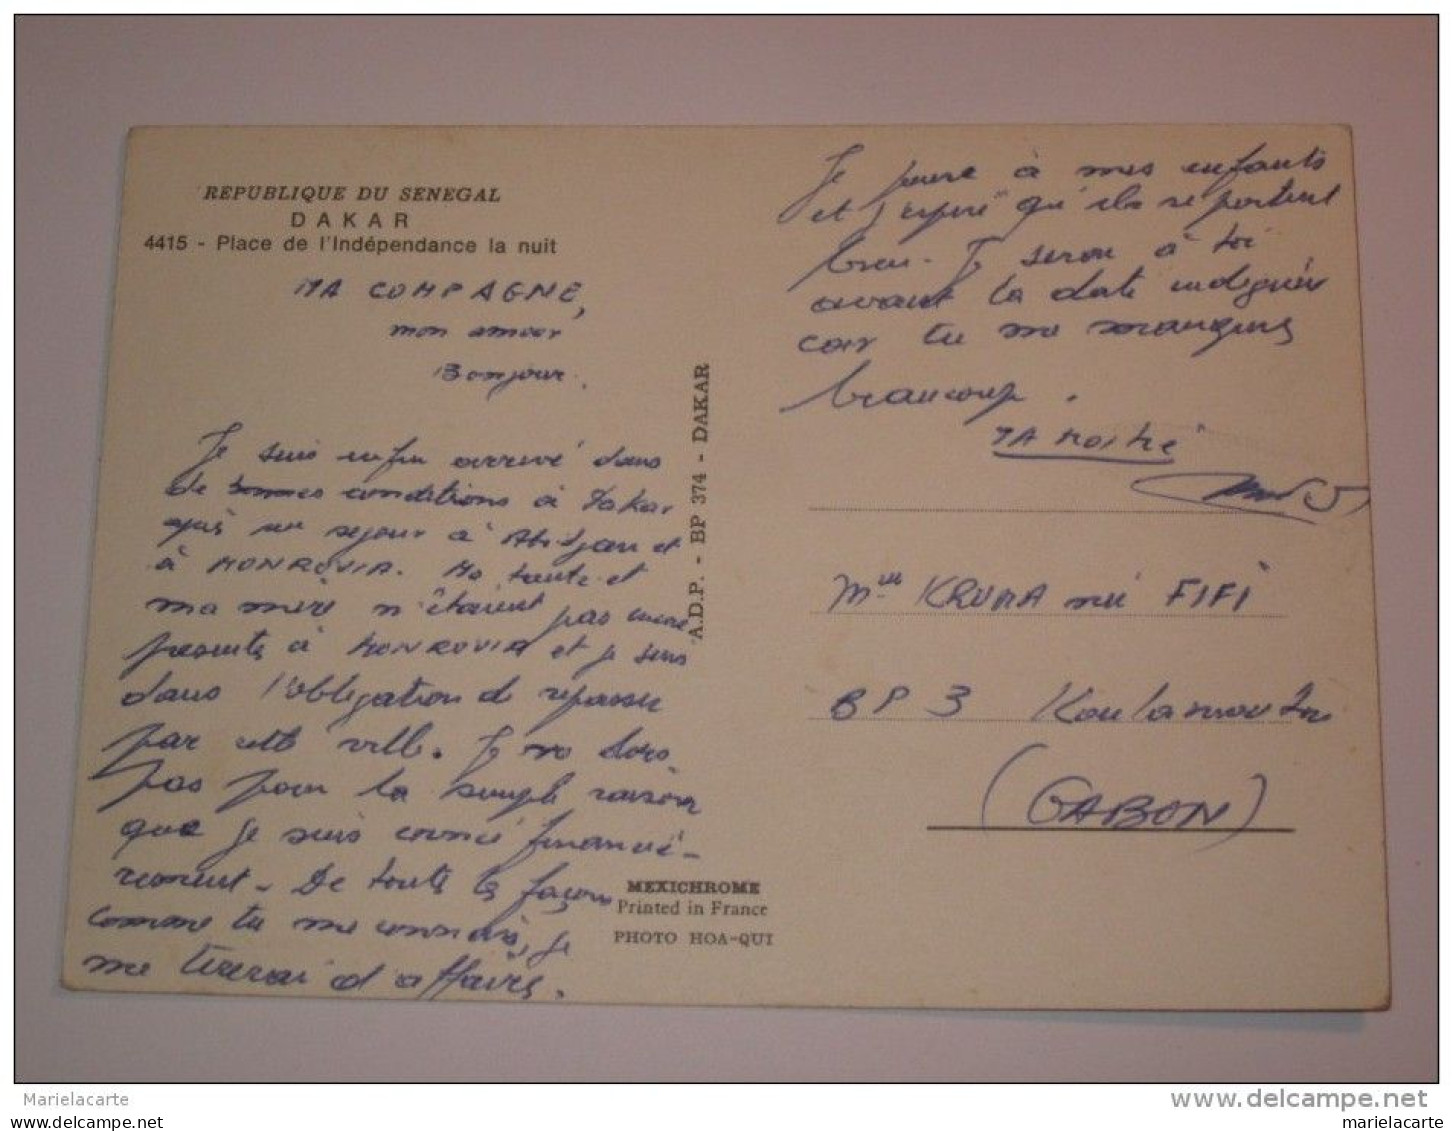 REPUBLIQUE DU SENEGAL
DAKAR
4415 - Place de l'Indépendance la nuit
MA COMPAGNE,
mon amour
Bonjour.
Je suis enfin arrivé dans
de bonnes conditions à Dakar
après un séjour à Abidjan et
à MONROVIA. Ma tante et
ma mère n'étaient pas encore
présents à MONROVIA et je suis
dans l'obligation de repasser
par cette ville. Je ne dors
pas pour la simple raison
que je suis coincé financiè-
rement. De toutes les façons
comme tu me connais, je
me tirerai d'affaires.
A.D.P. - BP 374 - DAKAR
MEXICHROME
Printed in France
PHOTO HOA-QUI
Je pense à mes enfants
et j'espère qu'ils se portent
bien. Je serai à toi
avant la date indiquée
car tu me manques
beaucoup.
TA MOITIÉ
Mme KRUMA née FIFI
BP 3 Koulamoutou
(GABON)
Marielacarte
www.delcampe.net
mariela carte
marielacarte